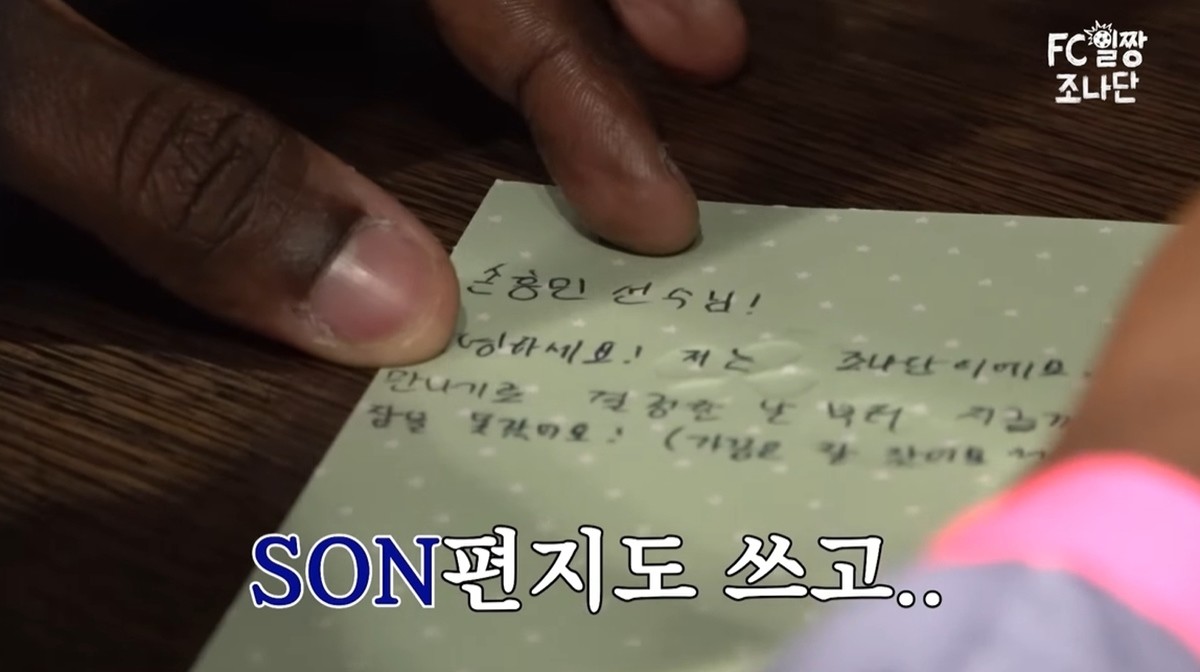 FC일짱
조나단
손흥민 선수님!
안녕하세요! 저는 조나단이에요.
만나기로 결정한 날부터 지금까
잠을 못 잤어요! (거짓말
SON편지도 쓰고..